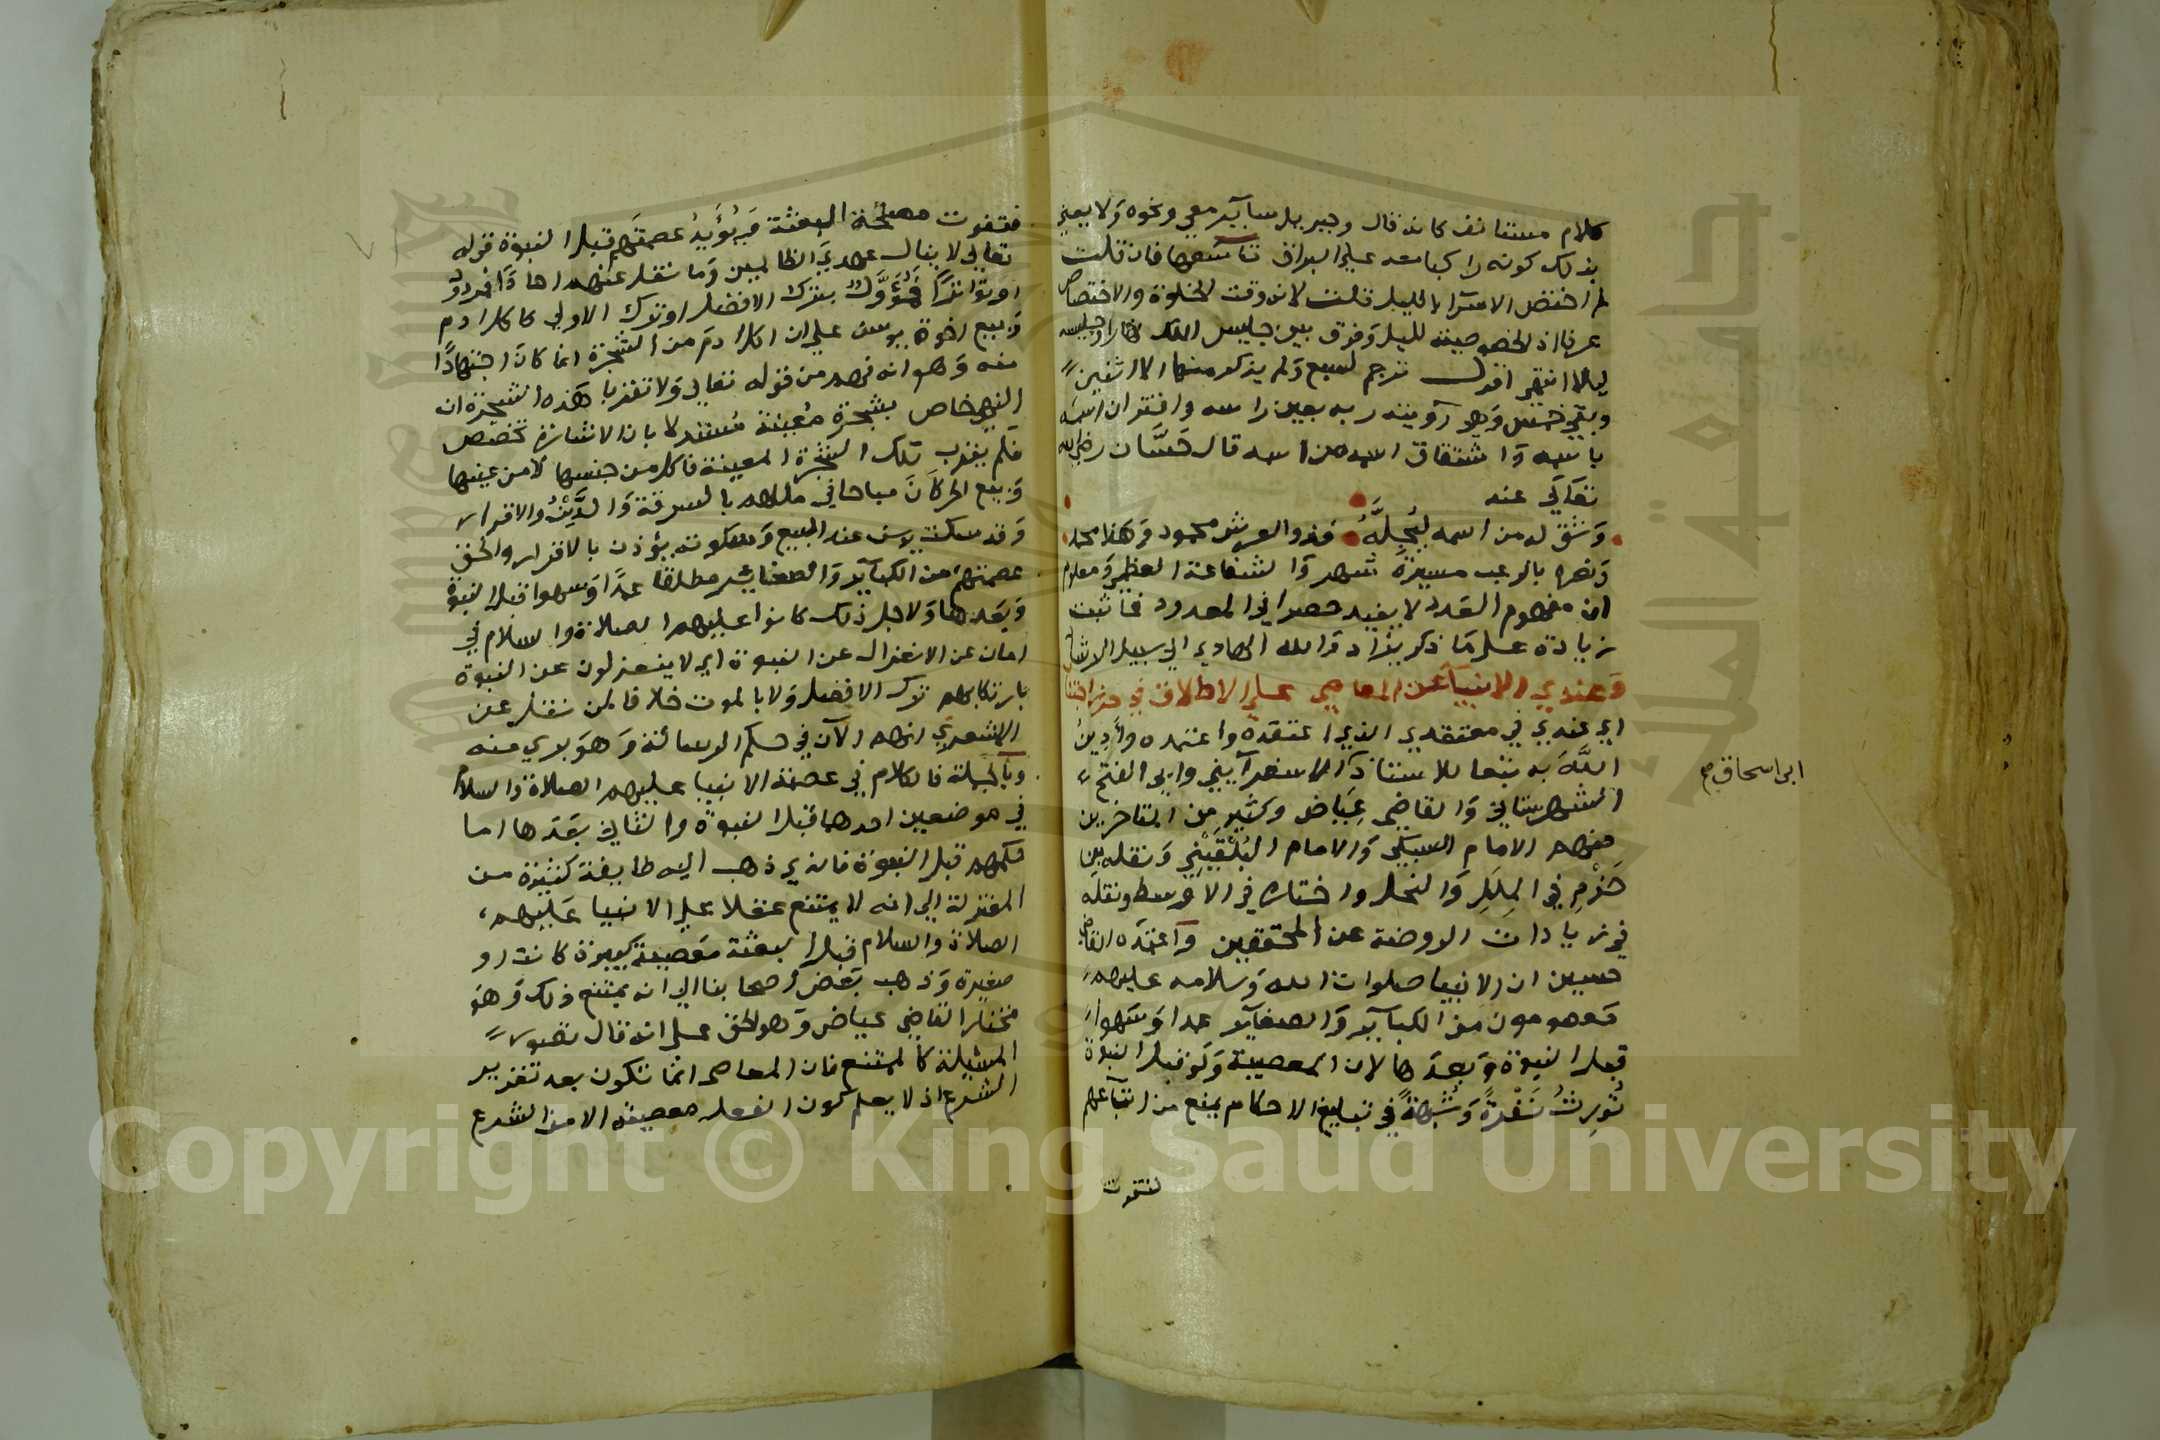 كلام مستانف كانه قال وجبريل سايد معي ونحوه ولا يعني
بذلك كونه راكبا معه علي البراق تاسعها فان قلت
لم اختص الاسرا بالليل قلت لانه وقت الخلوة والاختصاص
عرفا اذ لخصوصيته لليل وفرق بين جليس الملك نهارا وجليسه
ليلا انتهي اقول ترجم لسبع ولم يذكر منها الا اثنين
وبقي خمس وهي رويته ربه بعين راسه واقتران اسمه
باسمه واشتقاق اسمه من اسمه قال حسان رضي الله
تعالي عنه
وشق له من اسمه ليجله فذو العرش محمود وهذا محمد
ونصره بالرعب مسيرة شهر والشفاعة العظمي ومعلوم
ان مفهوم العدد لا يفيد حصرا في المعدود فما ثبت
زيادة علي ما ذكر يزاد والله الهادي الي سبيل الرشاد
وعندي الانبيا عن المعاصي علي الاطلاق في حرز
اي عندي في معتقدي الذي اعتقده واعتمده وأدين
الله به تبعا للاستاذ الاسفرآييني وابي الفتح
ابي اسحاق صح
الشهرستاني والقاضي عياض وكثير من المتاخرين
منهم الامام السبكي والامام البلقيني ونقله بن
حزم في الملل والنحل واختاره في الاوسط ونقله
في زيادات الروضة عن المحققين واعتمده القاضي
حسين ان الانبيا صلوات الله وسلامه عليهم
معصومون من الكبآير والصغآير عمدا وسهوا
قبل النبوة وبعدها لان المعصية ولو قبل النبوة
تورث نفرة وشبهة في تبليغ الاحكام يمنع من اتباعهم
فتفوت
فتفوت مصلحة البعثة ويؤيد عصمتهم قبل النبوة قوله
تعالي لا ينال عهدي الظالمين وما نقل عنهم احادا فمردود
او تواترا فمؤول بترك الافضل او ترك الاولي كاكل ادم
وبيع اخوة يوسف علي ان اكل ادم من الشجرة انما كان اجتهادا
منه وهو انه فهم من قوله تعالي ولا تقربا هذه الشجرة ان
النهي خاص بشجرة معينة مستدلا بان الاشارة تخصص
فلم يقرب تلك الشجرة المعينة فاكل من جنسها لا من عينها
وبيع الحر كان مباحا في مللهم بالسرقة والدين والاقرار
وقد سكت يوسف عند البيع وسكوته يؤذن بالاقرار والحق
عصمتهم من الكبآير والصغاير مطلقا عمدا وسهوا قبل النبوة
وبعدها ولاجل ذلك كانوا عليهم الصلاة والسلام في
امان عن الانعزال عن النبوة اي لا ينعزلون عن النبوة
بارتكابهم ترك الافضل ولا بالموت خلافا لمن نقل عن
الاشعري انهم الآن في حكم الرسالة وهو بري منه
وبالجملة فالكلام في عصمة الانبيا عليهم الصلاة والسلام
في موضعين احدهما قبل النبوة والثاني بعدها اما
حكمهم قبل النبوة فالذي ذهب اليه طايفة كثيرة من
المعتزلة الي انه لا يمتنع عقلا علي الانبيا عليهم
الصلاة والسلام قبل البعثة معصية كبيرة كانت او
صغيرة وذهب بعض اصحابنا الي انه يمتنع ذلك وهو
مختار القاضي عياض وهو الحق علي انه قال تصور
المسيلة كالممتنع فان المعاصي انما تكون بعد تقرير
الشرع اذ لا يعلم كون الفعل معصية الا من الشرع
Copyright © King Saud University